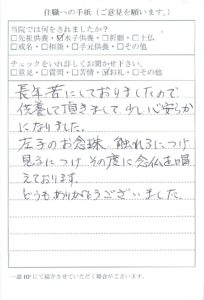 住職への手紙（ご意見を願います。）
当院では何をされましたか？
□先祖供養・□水子供養□祈願・□土仏
□戒名・□相談・□手元供養・□その他
チェックをいれ詳しくお聞かせ下さい。
□意見・□質問・□苦情・□お礼・□その他
長年苦にしておりましたので
供養して頂きまして少し心安らか
になりました。
左手のお念珠、触れるにつけ
見るにつけ その度に念仏を唱
えております。
どうもありがとうございました。
一部HPにて紹介させていただく場合がございます。